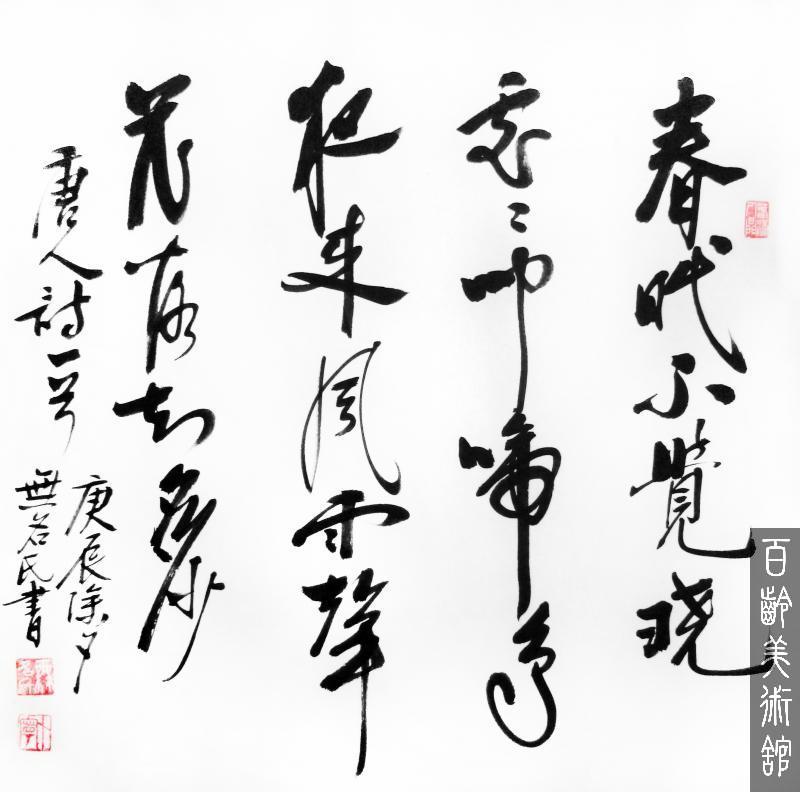 春眠不覺曉
處〻聞啼鳥
夜来風雨聲
花落知多少
唐人詩一首
庚辰除夕
無名氏書
卜寧
百齡美術館